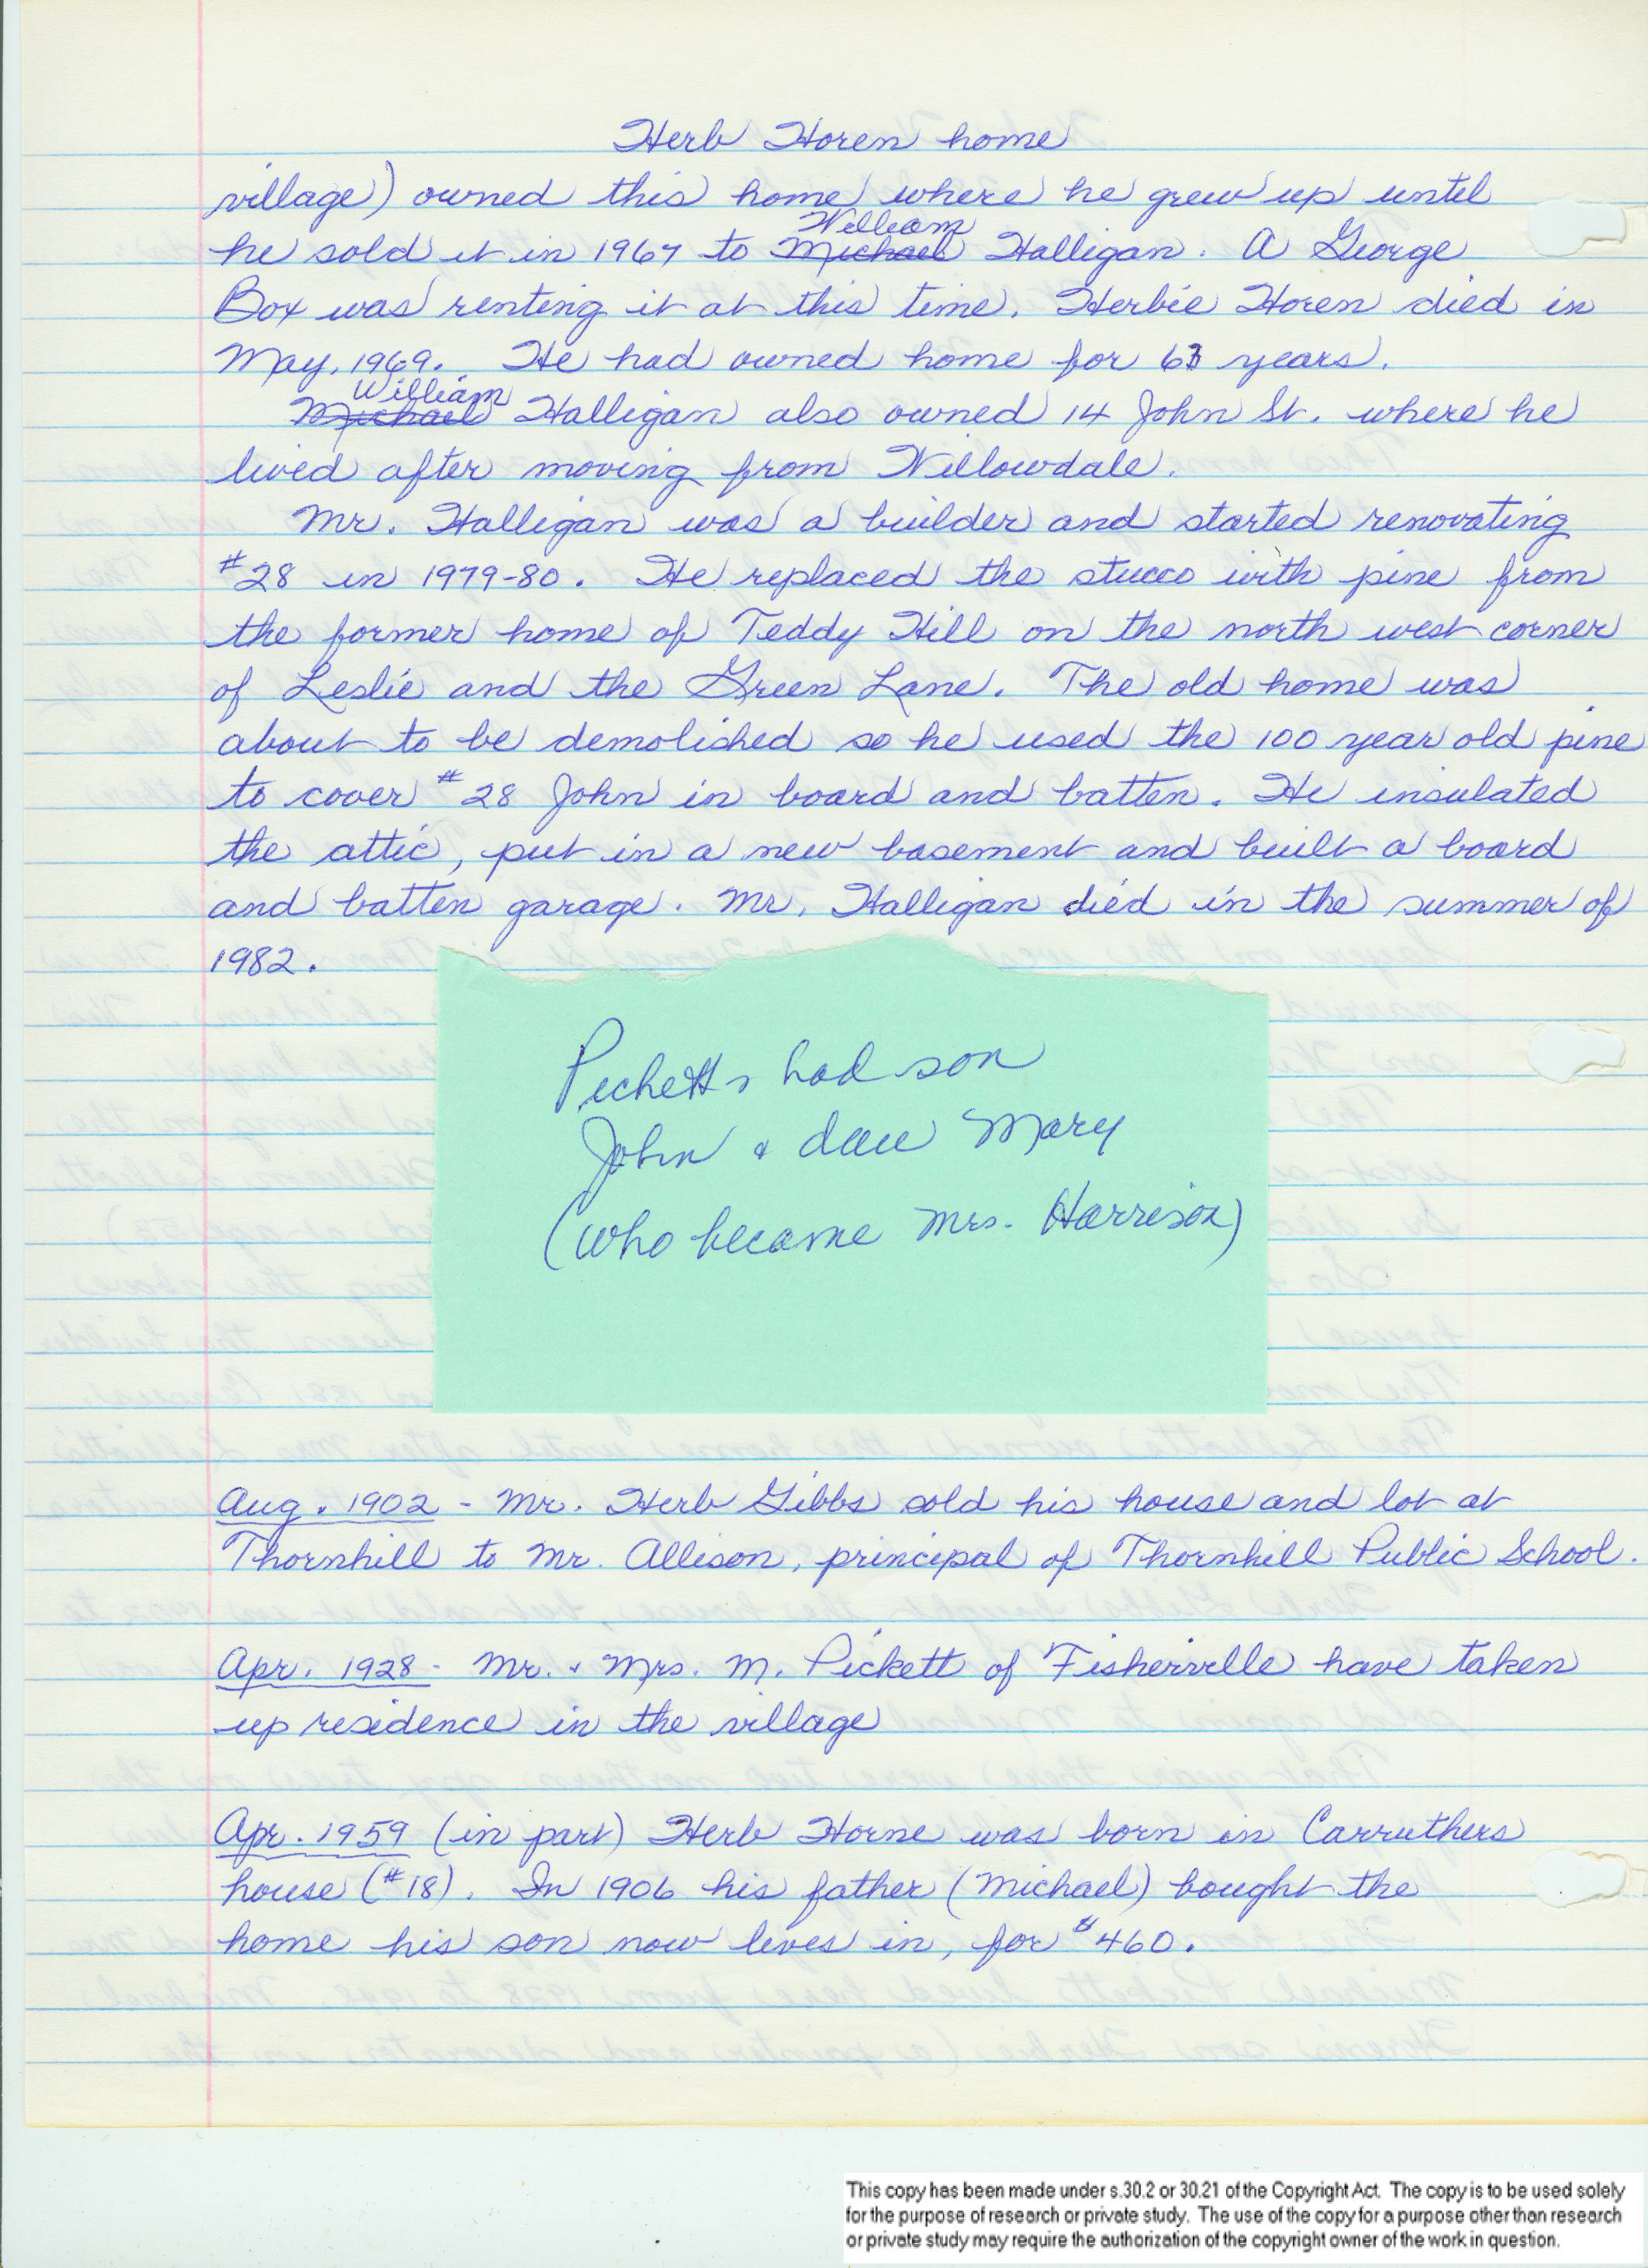 Herb Horen home
village) owned this home where he grew up until
William
he sold it in 1967 to Michael Halligan. A George
Box was renting it at this time. Herbie Horen died in
May, 1969. He had owned home for 63 years.
William
Michael Halligan also owned 14 John St. where he
lived after moving from Willowdale.
Mr. Halligan was a builder and started renovating
#28 in 1979-80. He replaced the stucco with pine from
the former home of Teddy Hill on the north west corner
of Leslie and the Green Lane. The old home was
about to be demolished so he used the 100 year old pine
to cover #28 John in board and batten. He insulated
the attic, put in a new basement and built a board
and batten garage. Mr. Halligan died in the summer of
1982.
Picketts had son
John & dau Mary
(who became Mrs. Harrison)
Aug. 1902 - Mr. Herb Gibbs sold his house and lot at
Thornhill to Mr. Allison, principal of Thornhill Public School.
Apr. 1928 - Mr. & Mrs. M. Pickett of Fisherville have taken
up residence in the village
Apr. 1959 (in part) Herb Horne was born in Carruthers
house (#18). In 1906 his father (Michael) bought the
home his son now lives in, for $460.
This copy has been made under s.30.2 or 30.21 of the Copyright Act. The copy is to be used solely
for the purpose of research or private study. The use of the copy for a purpose other than research
or private study may require the authorization of the copyright owner of the work in question.